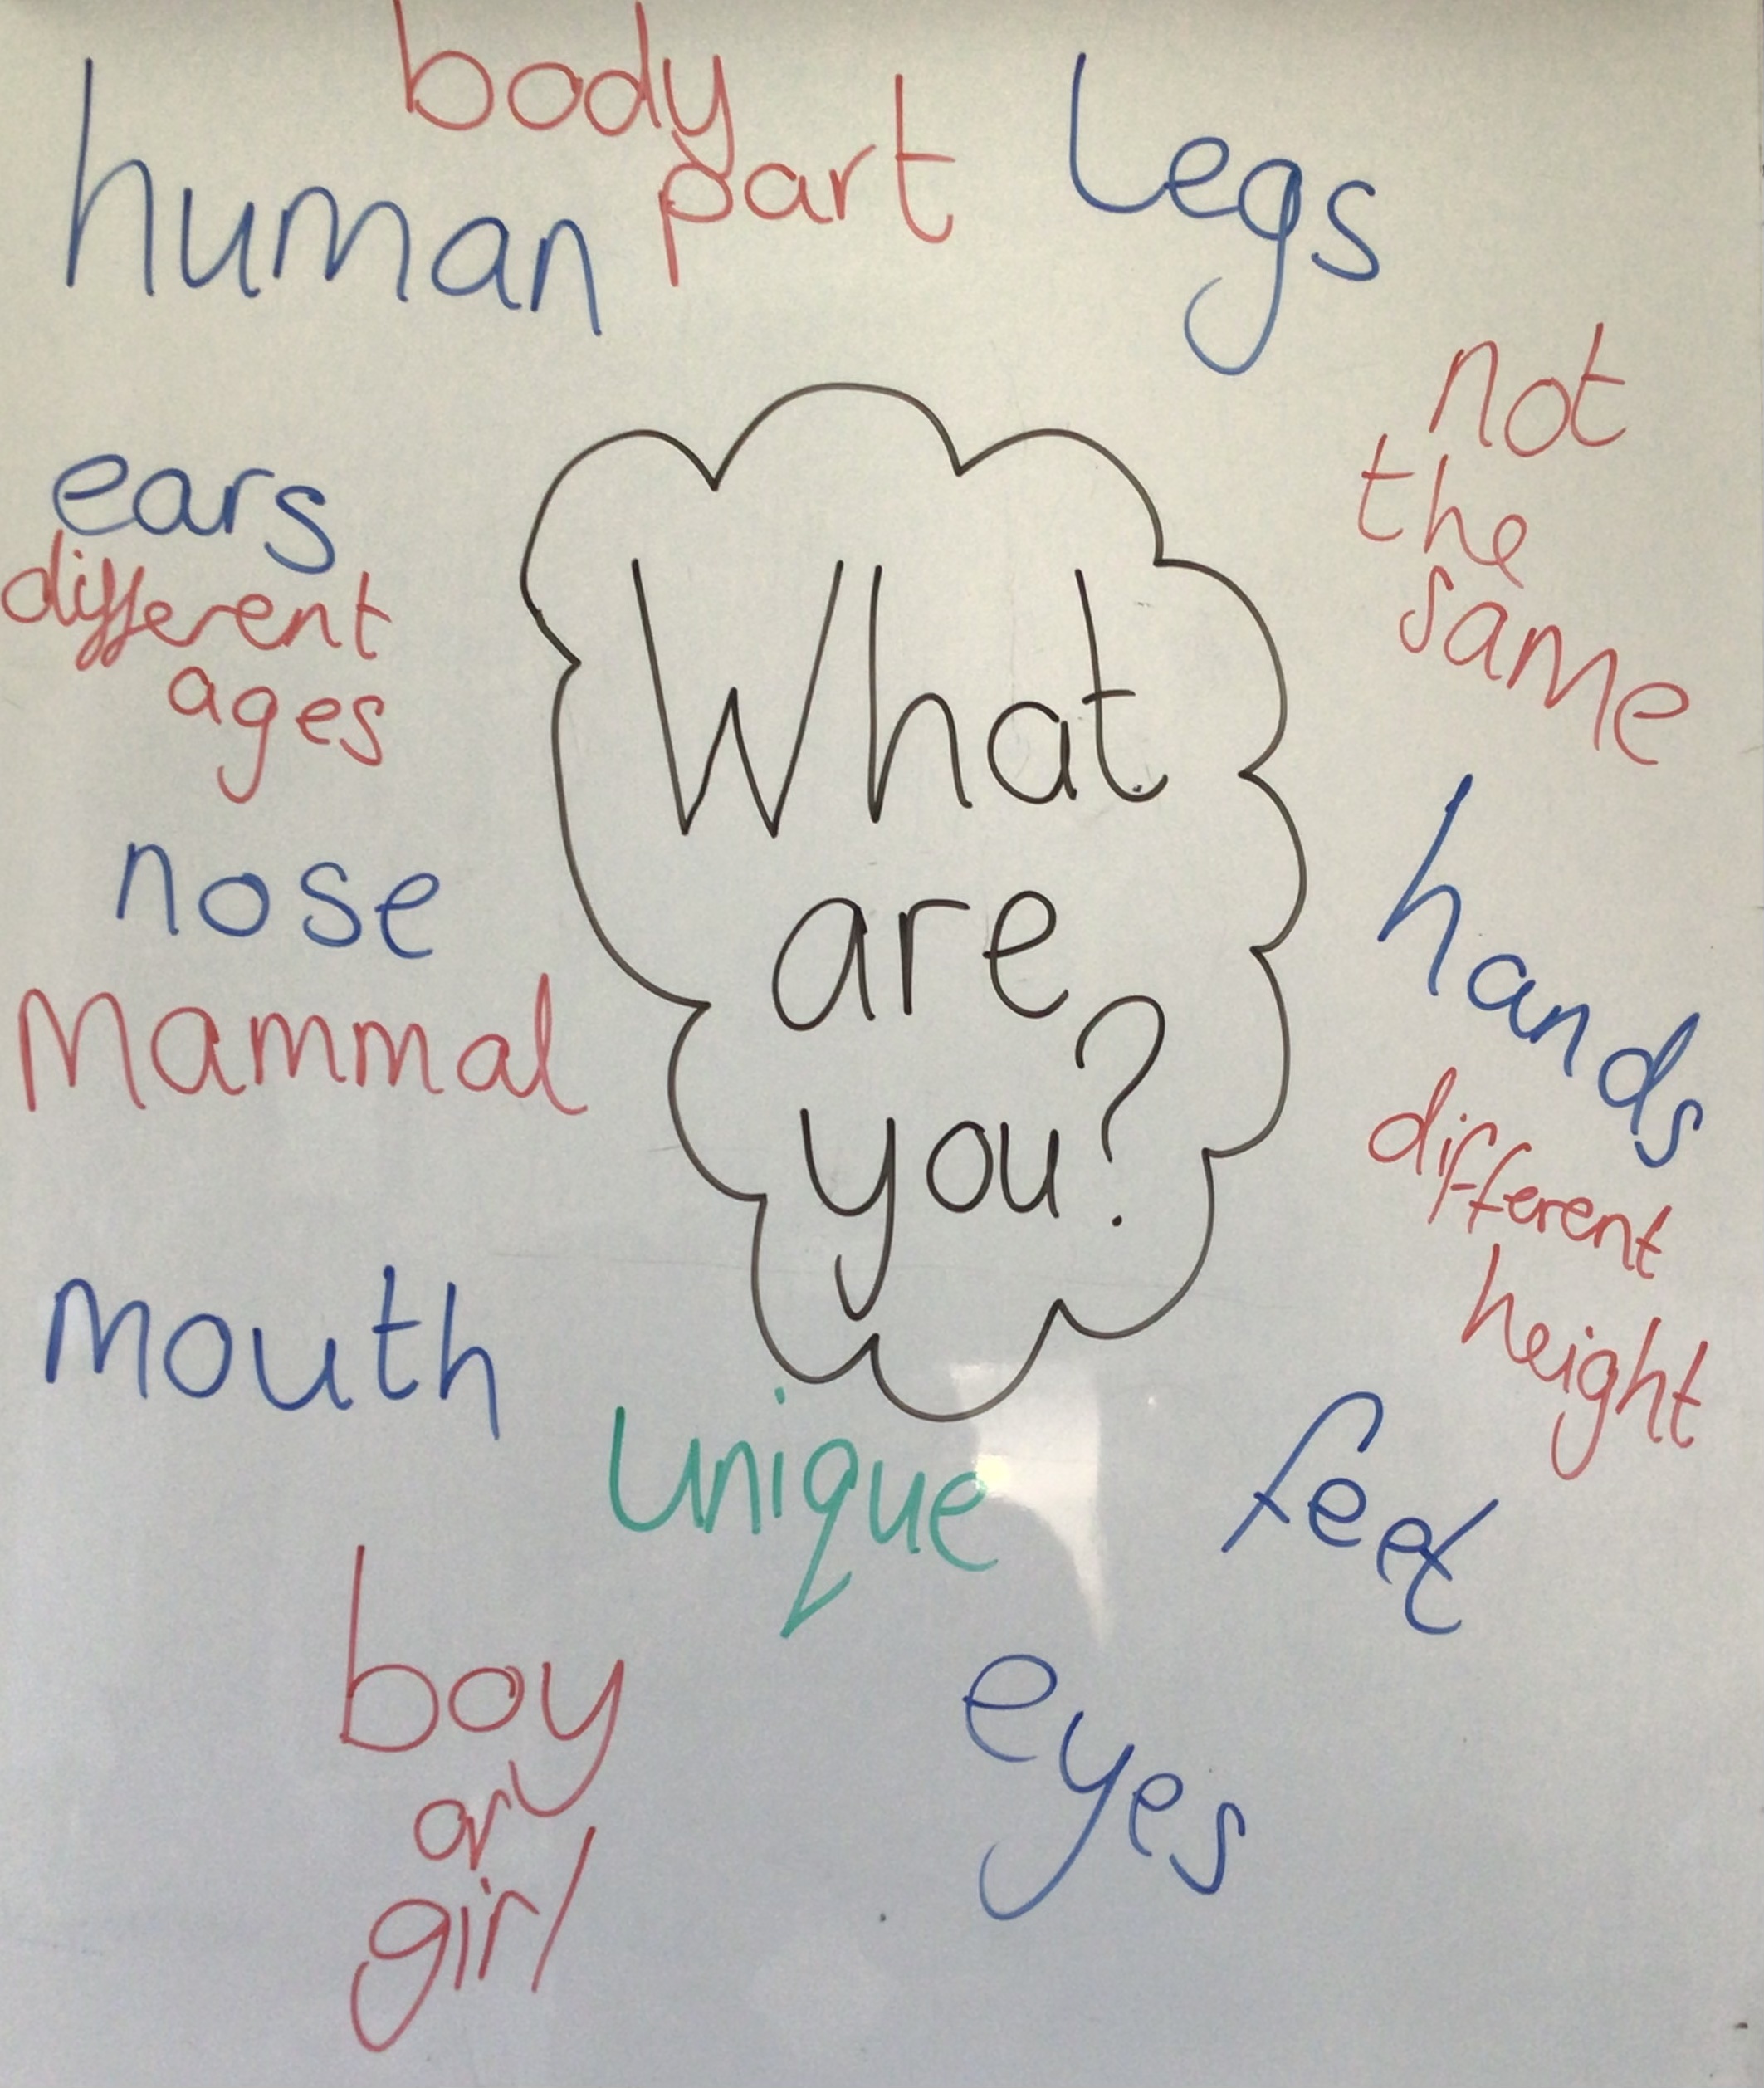 body
part
human
Legs
not
the
same
ears
different
ages
What
are
you?
nose
Mammal
hands
different
height
mouth
unique
feet
boy
or
girl
eyes